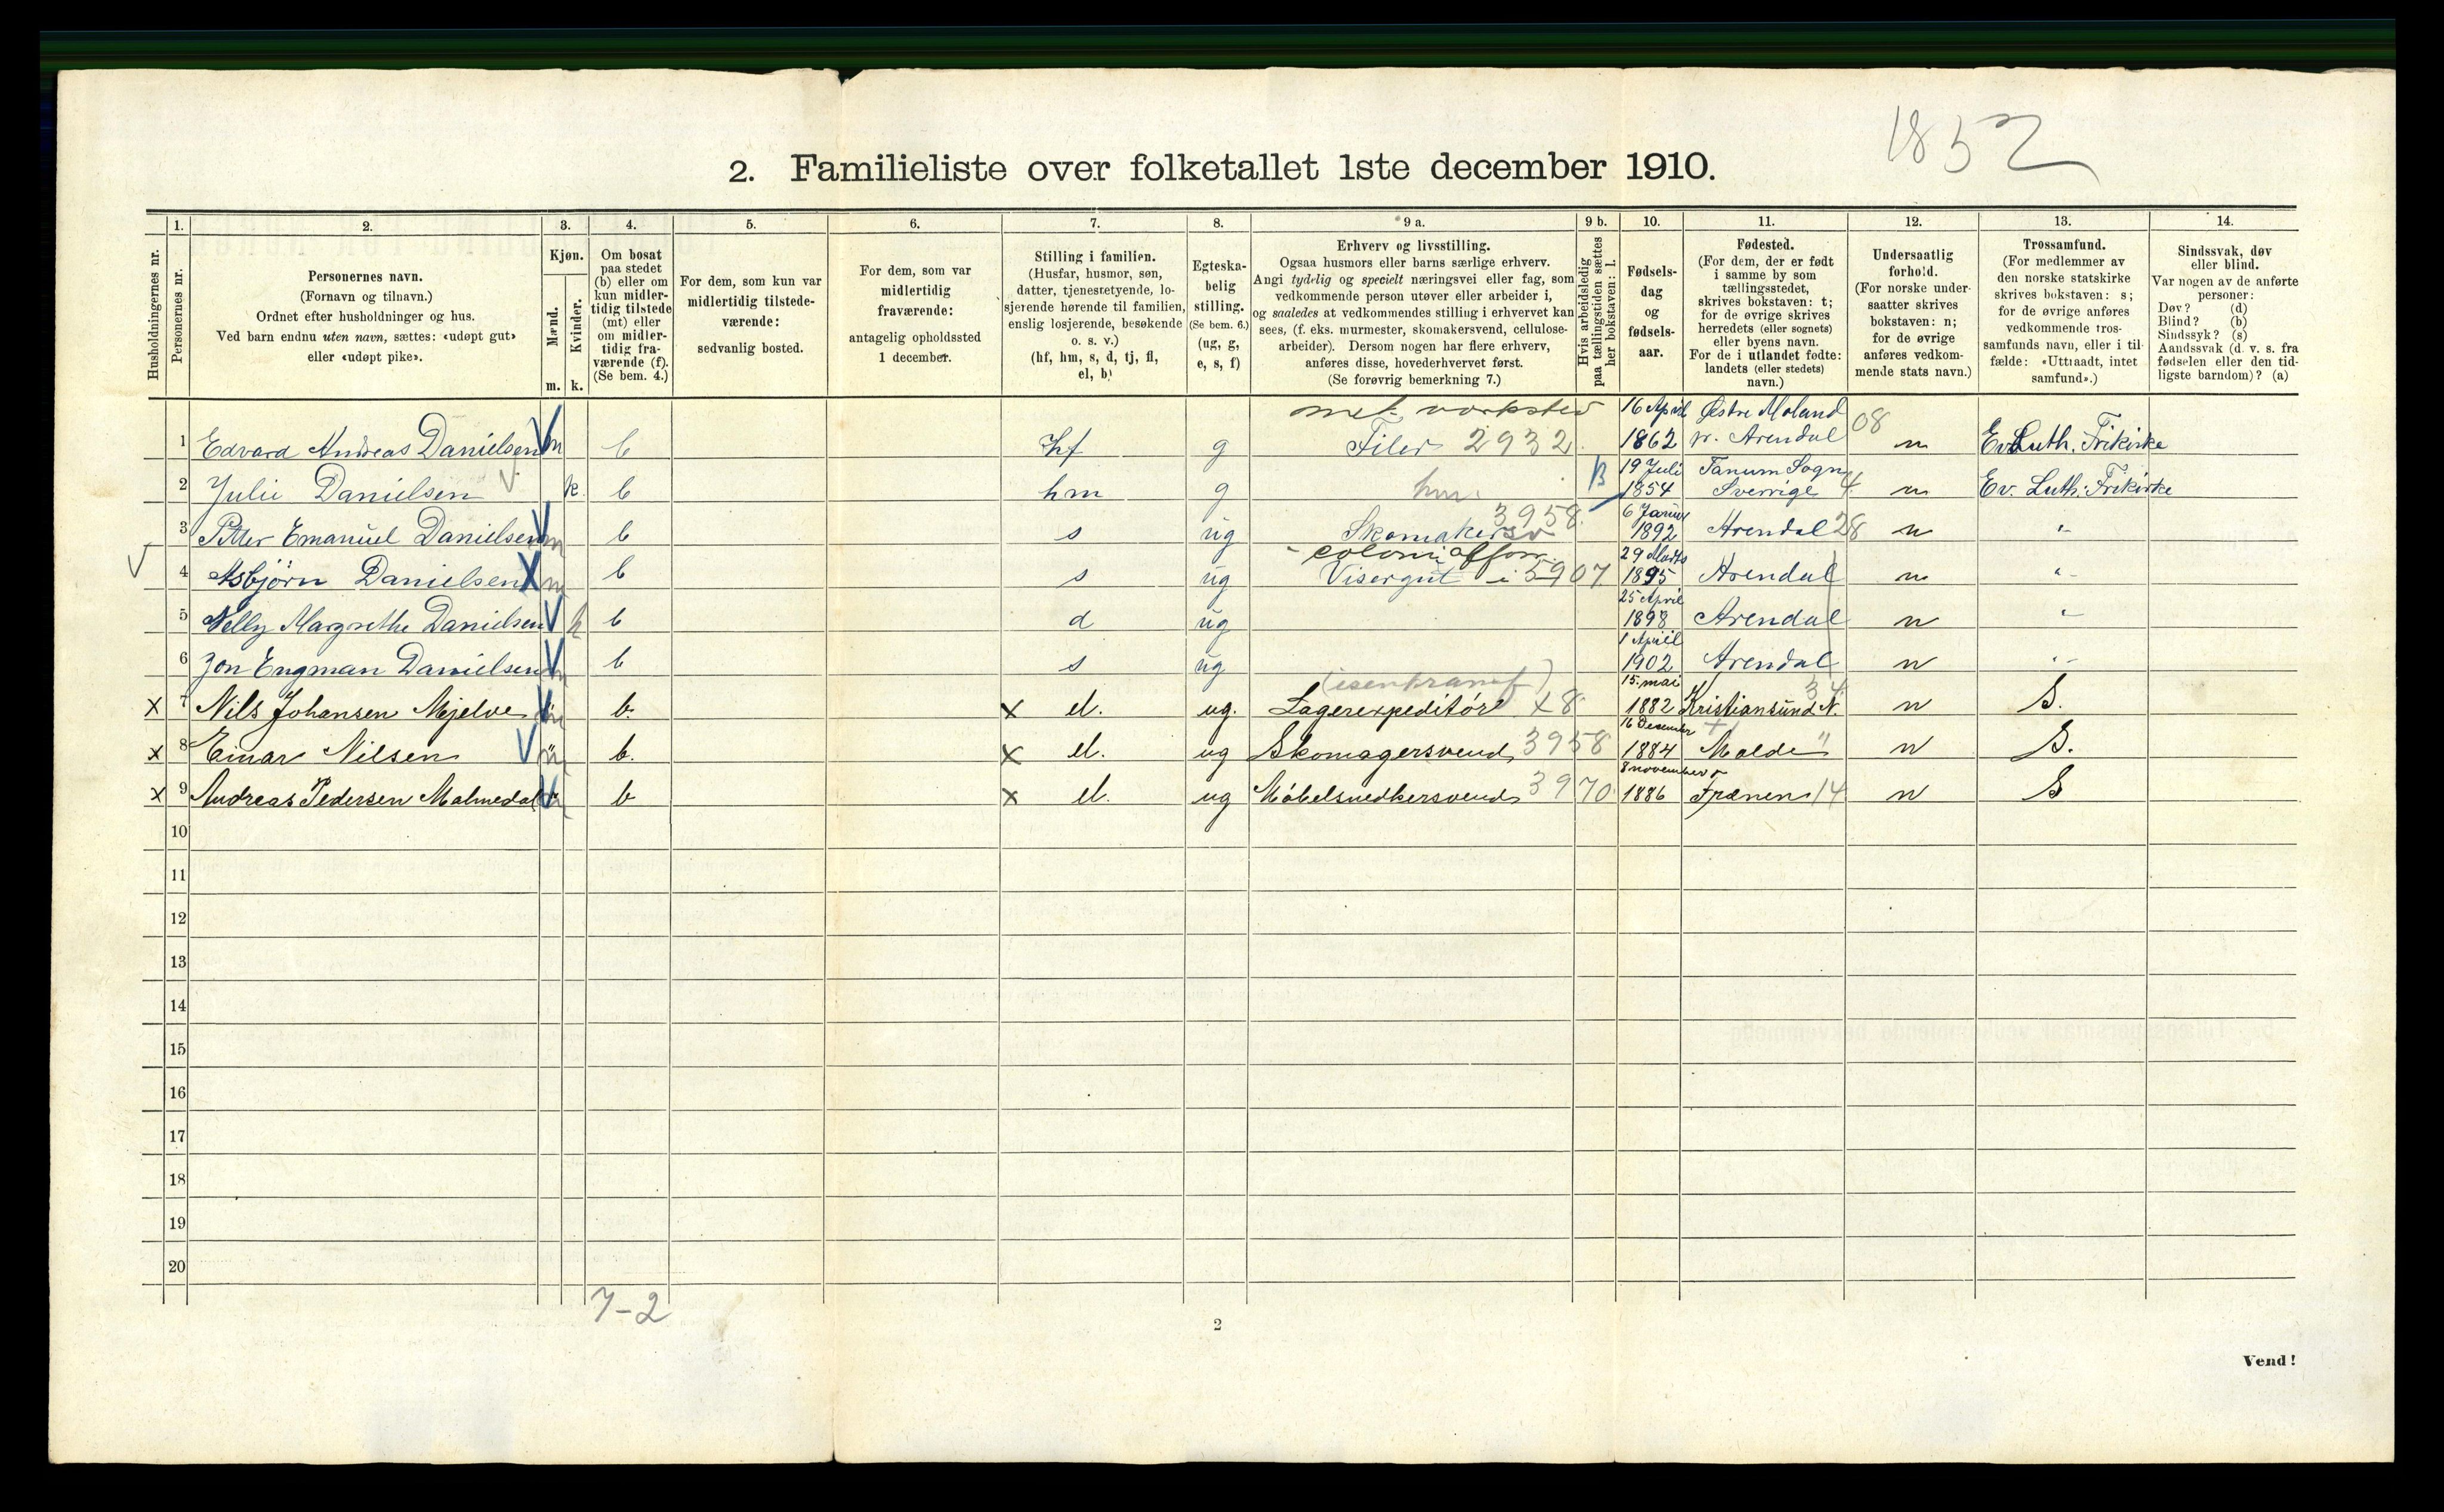 1852
2. Familieliste over folketallet 1ste december 1910.
1. 2. 3. 4. 5. 6. 7. 8. 9 a. 9 b. 10. 11. 12. 13. 14.
Husholdningernes nr.
Personernes nr.
Personernes navn.
(Fornavn og tilnavn.)
Ordnet efter husholdninger og hus.
Ved barn endnu uten navn, sættes: «udøpt gut»
eller «udøpt pike».
Kjøn.
Mænd.
Kvinder.
m. k.
Om bosat
paa stedet
(b) eller om
kun midler-
tidig tilstede
(mt) eller
om midler-
tidig fra-
værende (f).
(Se bem. 4.)
For dem, som kun var
midlertidig tilstede-
værende:
sedvanlig bosted.
For dem, som var
midlertidig
fraværende:
antagelig opholdssted
1 december.
Stilling i familien.
(Husfar, husmor, søn,
datter, tjenestetyende, lo-
sjerende hørende til familien,
enslig losjerende, besøkende
o. s. v.)
(hf, hm, s, d, tj, fl,
el, b)
Egteska-
belig
stilling.
(Se bem. 6.)
(ug, g,
e, s, f)
Erhverv og livsstilling.
Ogsaa husmors eller barns særlige erhverv.
Angi tydelig og specielt næringsvei eller fag, som
vedkommende person utøver eller arbeider i,
og saaledes at vedkommendes stilling i erhvervet kan
sees, (f. eks. murmester, skomakersvend, cellulose-
arbeider). Dersom nogen har flere erhverv,
anføres disse, hovederhvervet først.
(Se forøvrig bemerkning 7.)
Hvis arbeidsledig
paa tællingstiden sættes
her bokstaven: l.
Fødsels-
dag
og
fødsels-
aar.
Fødested.
(For dem, der er født
i samme by som
tællingsstedet,
skrives bokstaven: t;
for de øvrige skrives
herredets (eller sognets)
eller byens navn.
For de i utlandet fødte:
landets (eller stedets)
navn.)
Undersaatlig
forhold.
(For norske under-
saatter skrives
bokstaven: n;
for de øvrige
anføres vedkom-
mende stats navn.)
Trossamfund.
(For medlemmer av
den norske statskirke
skrives bokstaven: s;
for de øvrige anføres
vedkommende tros-
samfunds navn, eller i til-
fælde: «Uttraadt, intet
samfund».)
Sindssvak, døv
eller blind.
Var nogen av de anførte
personer:
Døv? (d)
Blind? (b)
Sindssyk? (s)
Aandssvak (d. v. s. fra
fødselen eller den tid-
ligste barndom)? (a)
mek. verksted 16 April Østre Moland 08
1 Edvard Andreas Danielsen m b hf g Filer 2932 1862 pr. Arendal n Ev. Luth. Frikirke
19 Juli Tanum Sogn
2 Julie Danielsen k. b hm g hm. B 1854 Sverrige 4 n Ev. Luth. Frikirke
3958. 6 Januar
3 Petter Emanuel Danielsen m b s ug Skomakersv 1892 Arendal 28 n "
colonialforr. 29 Marts
4 Asbjörn Danielsen m b s ug Visergut i 5907 1895 Arendal n "
25 April
5 Nelly Margrethe Danielsen k b d ug 1898 Arendal n "
1 April
6 Jon Engman Danielsen m b s ug 1902 Arendal n "
(isenkramf) 15. mai 34
x 7 Nils Johansen Mjelve m b. x el. ug. Lagerexpeditör x8 1882 Kristiansund N. n S.
16 Desember
x 8 Einar Nilsen m b. x el. ug Skomagersvend 3958 1884 Molde " n S.
8 november
x 9 Andreas Pedersen Malmedal m b x el. ug Möbelsnedkersvend 3970 1886 Frænen 14 n S
10
11
12
13
14
15
16
17
18
19
20
7-2
2
Vend!